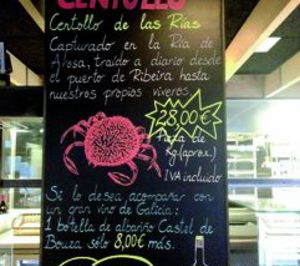 CENTOLLO
Centollo de las Rías
Capturado en la Ría de
Arosa, traído a diario desde
el puerto de Ribeira hasta
nuestros propios viveros.
28,00€
Pieza de
Kg (aprox.)
IVA incluido
Si lo desea acompañar con
un gran vino de Galicia:
1 botella de albariño Castel de
Bouza sólo 8,00€ más.